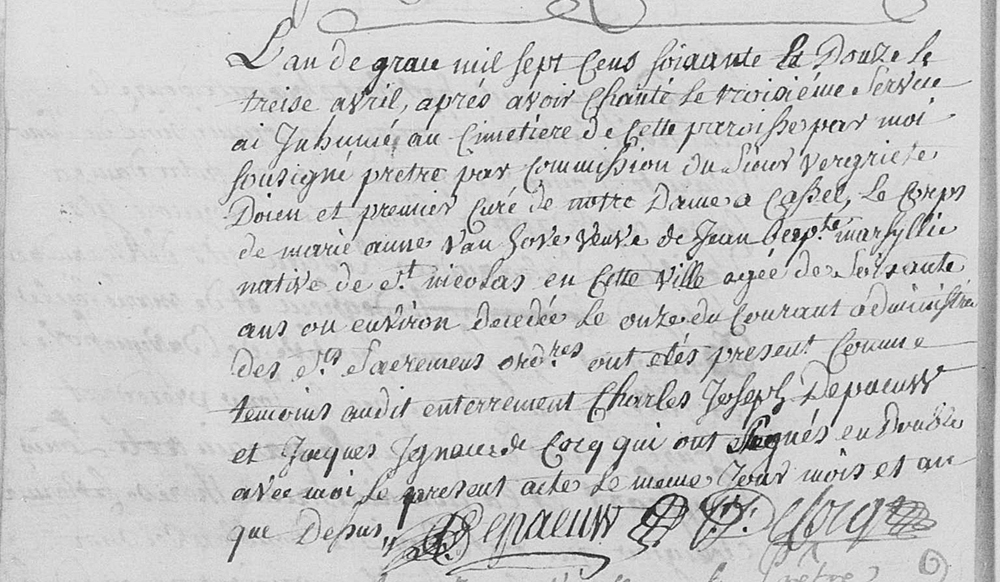 L'an de grace mil sept Cens soixante Et Douze le
treise avril, aprés avoir Chanté le troisiéme Service
ai Inhumé au Cimetiere de Cette paroisse par moi
sousigné prêtre par Commission du Sieur Vergriete
Doien et premier Curé de notre Dame a Cassel, Le Corps
de marie anne Van hove veuve de Jean bapte marsyllie
native de St nicolas en Cette Ville agée de Soixante
ans ou environ decedée Le onze du Courant administrée
des Sts Sacremens ordres ont etés present Comme
temoins audit enterrement Charles Joseph Depaeuw
et Jacques Ignace de Cocq qui ont Signés en Double
avec moi le present acte le meme Jour mois et an
que Depus
Depaeuw De Cocq